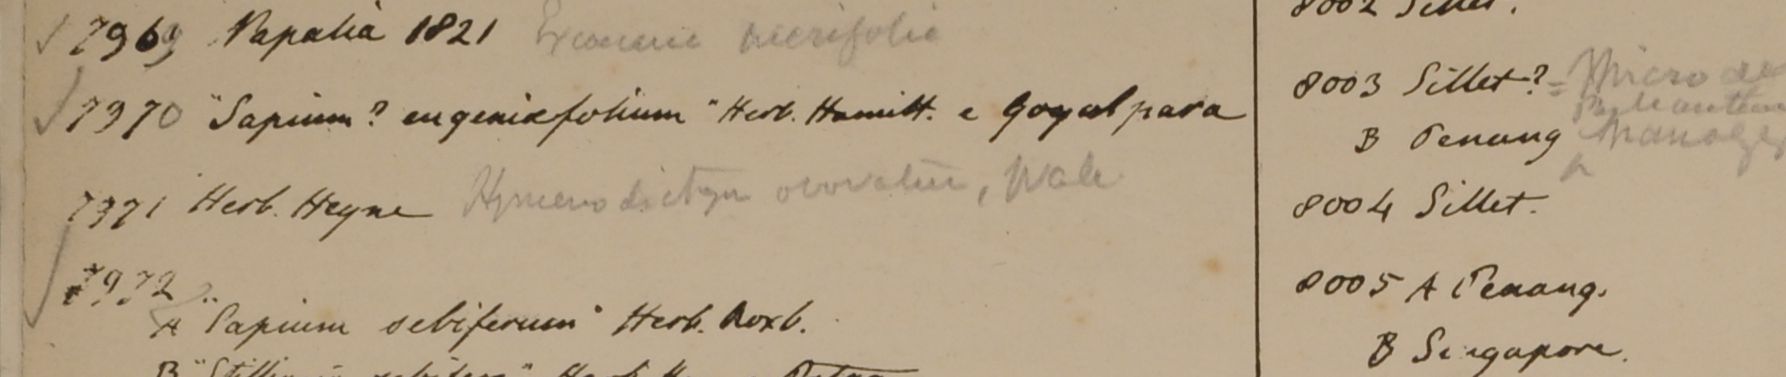 7969 Napalia 1821
7970 "Sapium? eugeniæfolium" Herb. Hamilt. e Goyalpara
7971 Herb. Heyne Hymenodictyon obovatum, Wall
7972
A "Sapium sebiferum" Herb. Roxb.
B "Stillingia sebifera" Herb.
8002 Sillet.
8003 Sillet? = Micro
B Penang
8004 Sillet.
8005 A Penang.
B Singapore.